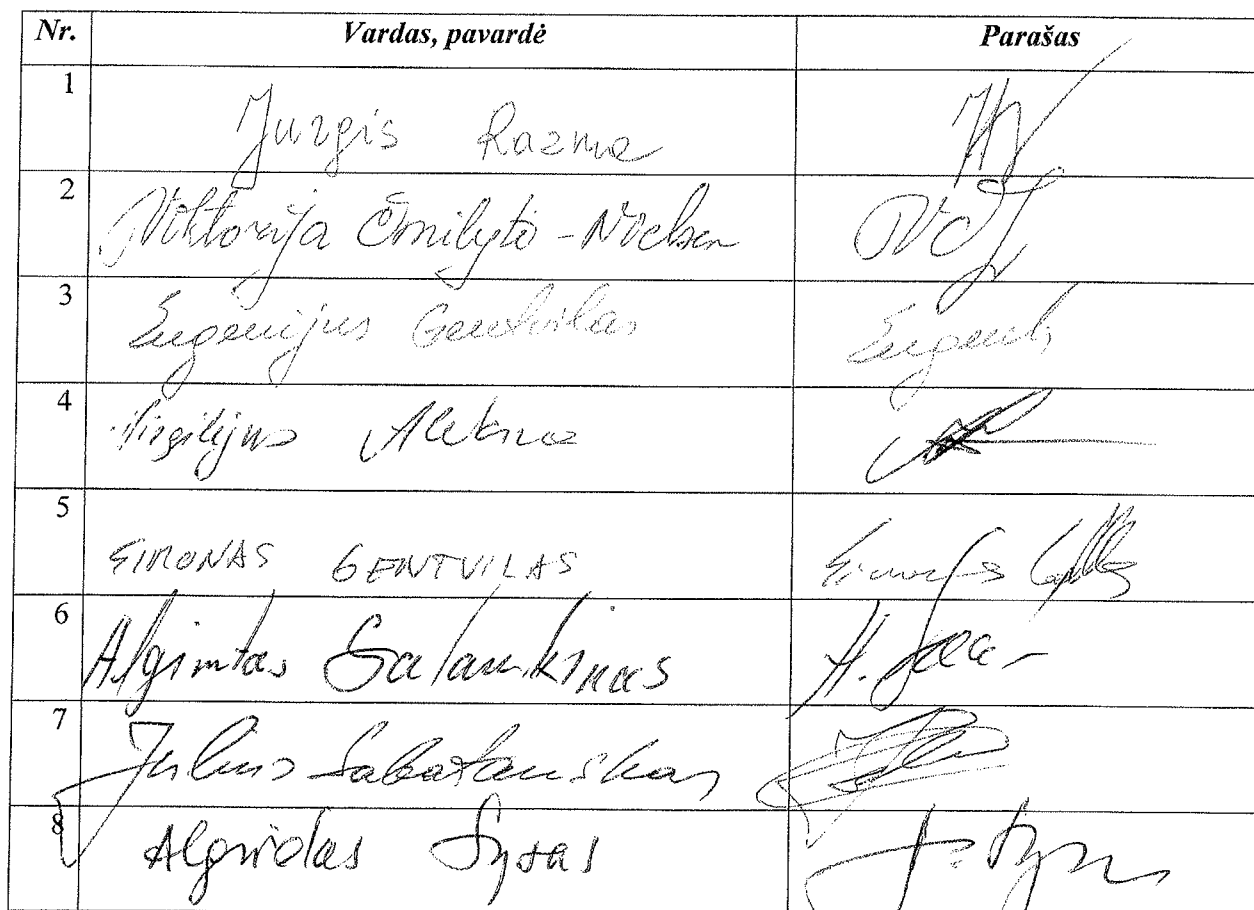 Nr. Vardas, pavardė Parašas
1 Jurgis Razma
2 Viktorija Čmilytė-Nielsen
3 Eugenijus Gentvilas
4 Virgilijus Alekna
5 SIMONAS GENTVILAS
6 Algimtas Salamakinas A.
7 Julius Sabatauskas
8 Algirdas Sysas